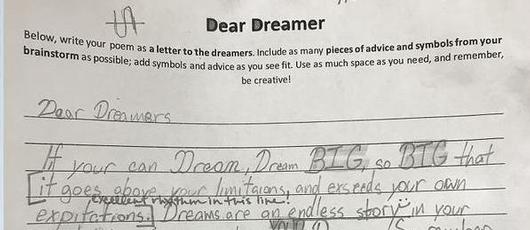 Dear Dreamer
Below, write your poem as a letter to the dreamers. Include as many pieces of advice and symbols from your
brainstorm as possible; add symbols and advice as you see fit. Use as much space as you need, and remember,
be creative!
Dear Dreamers
If your can Dream, Dream BIG, so BIG that
[it goes above your limitaions, and exseeds your own
excellent rhythm in this line!
expitations.] Dreams are an endless story in your